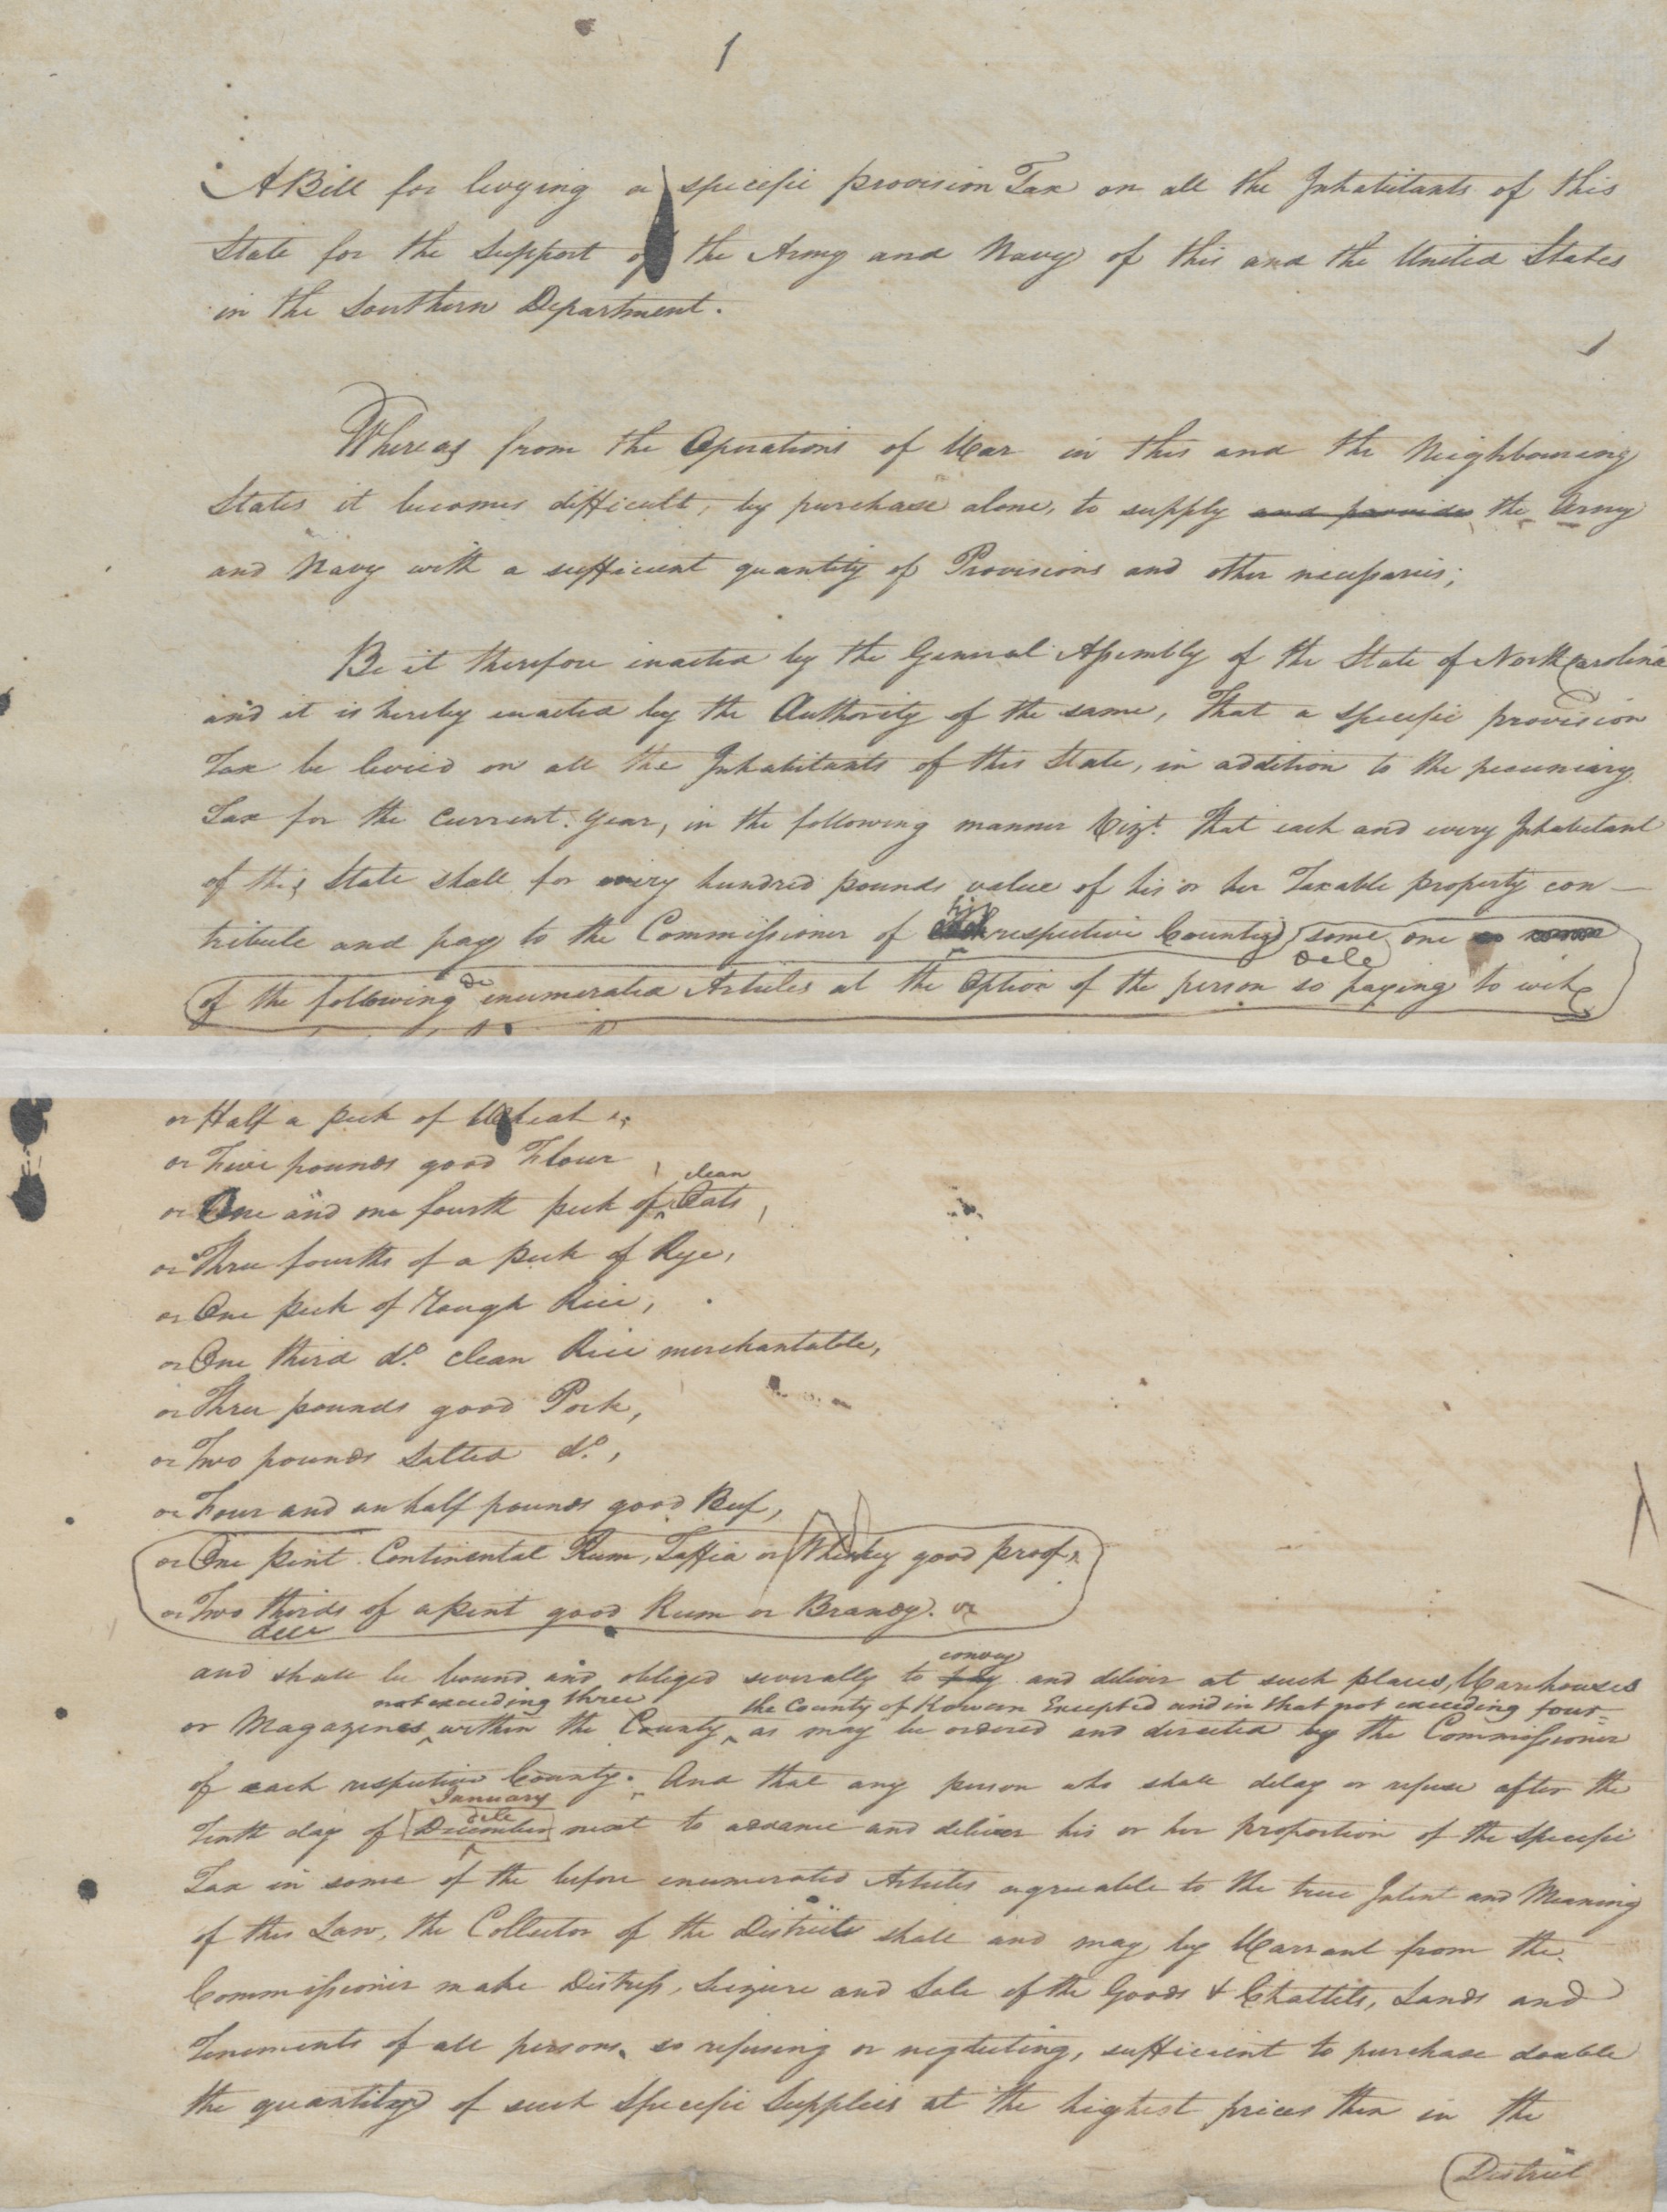 1
A Bill for levying a specific provision Tax on all the Inhabitants of this
State for the Support of the Army and Navy of this and the United States
in the Southern Department.
Whereas from the Operations of War in this and the Neighbouring
States it becomes difficult, by purchase alone, to supply and provide the Army
and Navy with a sufficient quantity of Provisions and other necessaries;
Be it therefore enacted by the General Assembly of the State of North Carolina
and it is hereby enacted by the Authority of the same, That a specific provision
Tax be levied on all the Inhabitants of this State, in addition to the pecuniary
Tax for the Current Year, in the following manner Vizt. That each and every Inhabitant
of this State shall for every hundred pounds value of his or her Taxable property con-
his
tribute and pay to the Commissioner of each respective County some one or more
dele
of the following enumerated Articles at the Option of the person so paying to wit
or Half a peck of Wheat
or Five pounds good Flour,
clean
or One and one fourth peck of Oats,
or Three fourths of a peck of Rye,
or One peck of Rough Rice,
or One third do. clean Rice merchantable,
or Three pounds good Pork,
or Two pounds Salted do.,
or Four and an half pounds good Beef,
or One pint Continental Rum, Taffia or Whiskey good proof,
or Two thirds of a pint good Rum or Brandy. or
dele
convey
and shall be bound and obliged severally to pay and deliver at such places, Warehouses
not exceeding three the County of Rowan Excepted and in that not exceeding four
or Magazines within the County as may be ordered and directed by the Commissioner
of each respective County. And that any person who shall delay or refuse after the
January
dele
Tenth day of December next to advance and deliver his or her proportion of the Specific
Tax in some of the before enumerated Articles agreeable to the true Intent and Meaning
of this Law, the Collector of the Districts shall and may by Warrant from the
Commissioner make Distress, Seizure and Sale of the Goods & Chattels, Lands and
Tenements of all persons so refusing or neglecting, sufficient to purchase double
the quantity of such Specific Supplies at the highest prices then in the
District